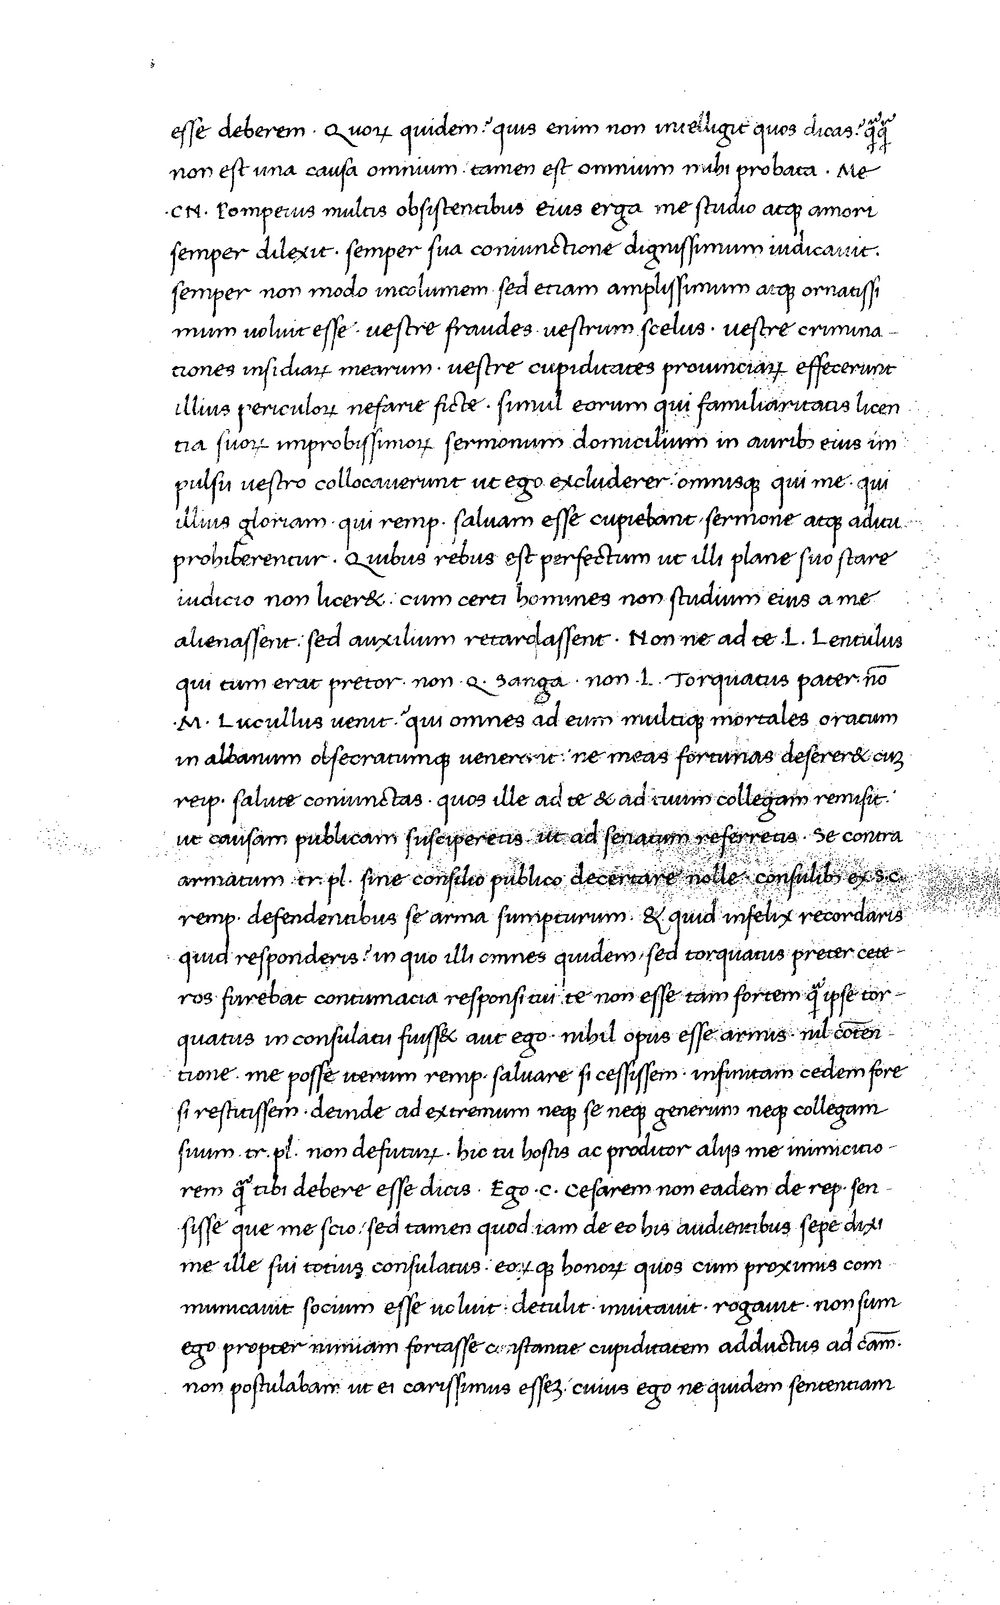 esse deberem · Quoꝝ quidem? quis enim non intelligit quos dicas? ꝙͣꝙͣ
non est una causa omnium : tamen est omnium mihi probata · Me
·CN· Pompeius multis obsistentibus eius erga me studio atqꝫ amori
semper dilexit · semper sua coniunctione dignissimum iudicauit ·
semper non modo incolumem sed etiam amplissimum atqꝫ ornatissi
mum uoluit esse · uestre fraudes · uestrum scelus · uestre crimina-
tiones insidiaꝝ mearum · uestre cupiditates prouinciaꝝ effecerunt
illius periculoꝝ nefarie ficte · simul eorum qui familiaritatis licen
tia suoꝝ improbissimoꝝ sermonum domicilium in auribꝫ eius im
pulsu uestro collocauerunt ut ego excluderer : omnisqꝫ qui me · qui
illius gloriam · qui remp. saluam esse cupiebant · sermone atqꝫ aditu
prohiberentur · Quibus rebus est perfectum ut illi plane suo stare
iudicio non licer& : cum certi homines non studium eius a me
alienassent : sed auxilium retardassent · Non ne ad te ·L· Lentulus
qui tum erat pretor · non ·Q· Sanga · non ·L· Torquatus pater · nō
·M· Lucullus uenit? qui omnes ad eum multiqꝫ mortales oratum
in albanum obsecratumqꝫ uenerant : ne meas fortunas deserer& cuꝫ
reip. salute coniunctas · quos ille ad te & ad tuum collegam remisit :
ut causam publicam susciperetis · ut ad senatum referretis · Se contra
armatum tr. pl. sine consilio publico decertare nolle · consulibꝫ ex S.C.
remp. defendentibus se arma sumpturum · & quid infelix recordaris
quid responderis? in quo illi omnes quidem, sed torquatus preter cete-
ros furebat contumacia responsi tui : te non esse tam fortem ꝙͣ ipse tor-
quatus in consulatu fuiss& aut ego · nihil opus esse armis · nil cōten-
tione · me posse iterum remp. saluare si cessissem · infinitam cedem fore
si restitissem · deinde ad extremum neqꝫ se neqꝫ generum neqꝫ collegam
suum tr. pl. non defuturꝝ · hic tu hostis ac proditor alijs me inimicitio-
rem ꝙͣ tibi debere esse dicis · Ego ·C· Cesarem non eadem de rep. sen-
sisse que me scio : sed tamen quod iam de eo his audientibus sepe dixi
me ille sui totius consulatus : eoꝝqꝫ honoꝝ quos cum proximis com-
municauit socium esse uoluit : detulit · inuitauit · rogauit · non sum
ego propter nimiam fortasse constantie cupiditatem adductus ad cām ·
non postulabam ut ei carissimus esseꝫ · cuius ego ne quidem sententiam